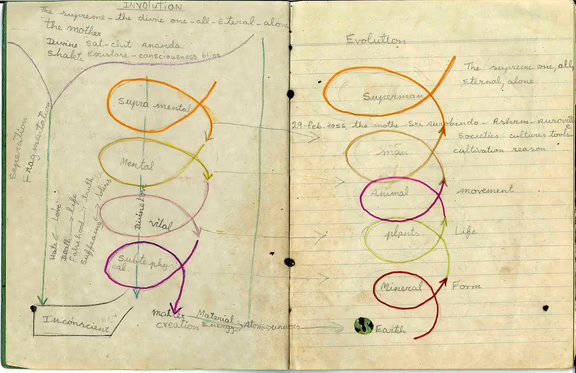 INVOLUTION
The supreme - the divine one - all - Eteral - alone
the mother
Divine Sat-chit Ananda
Shakti existare - consciousness bliss
Separation
Fragmentation
Supra mental
Mental
Divine Love
vital
Subte phy-
cal.
Hate - Love
Death - Life
Falsehood - truth
Suffering - bliss
Inconscient
matter - Material
creation Energy - Atom
Evolution
The supreme one, all,
Eternal, alone
Superman
29-Feb. 1956, the mothe Sri Aurobindo - Ashram - Auroville
Societies - cultures tools
cultivation reason
man
Animal
movement
plants
Life
Mineral
Form
Earth